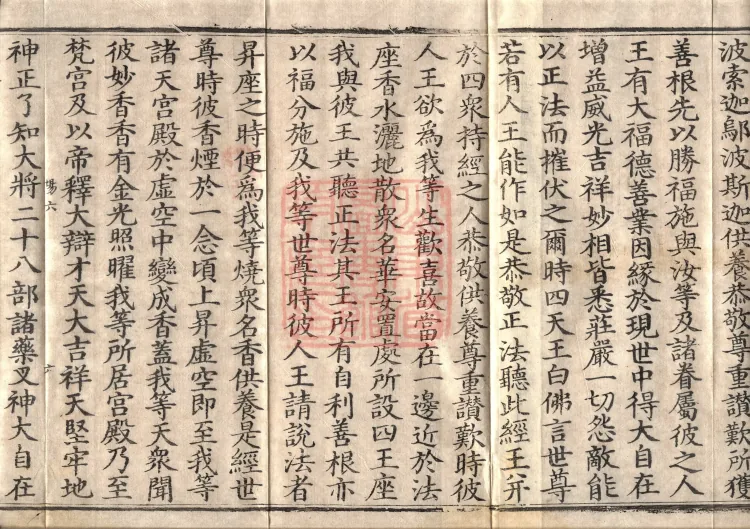 波索迦鄔波斯迦供養恭敬尊重讚歎所獲
善根先以勝福施與汝等及諸眷屬彼之人
王有大福德善業因緣於現世中得大自在
增益威光吉祥妙相皆悉莊嚴一切怨敵能
以正法而摧伏之爾時四天王白佛言世尊
若有人王能作如是恭敬正法聽此經王并
於四衆持經之人恭敬供養尊重讚歎時彼
人王欲為我等生歡喜故當在一邊近於法
座香水灑地散衆名華安置處所設四王座
我與彼王共聽正法其王所有自利善根亦
以福分施及我等世尊時彼人王請說法者
昇座之時便為我等燒衆名香供養是經世
尊時彼香煙於一念頃上昇虛空即至我等
諸天宮殿於虛空中變成香蓋我等天衆聞
彼妙香香有金光照曜我等所居宮殿乃至
梵宮及以帝釋大辯才天大吉祥天堅牢地
神正了知大將二十八部諸藥叉神大自在